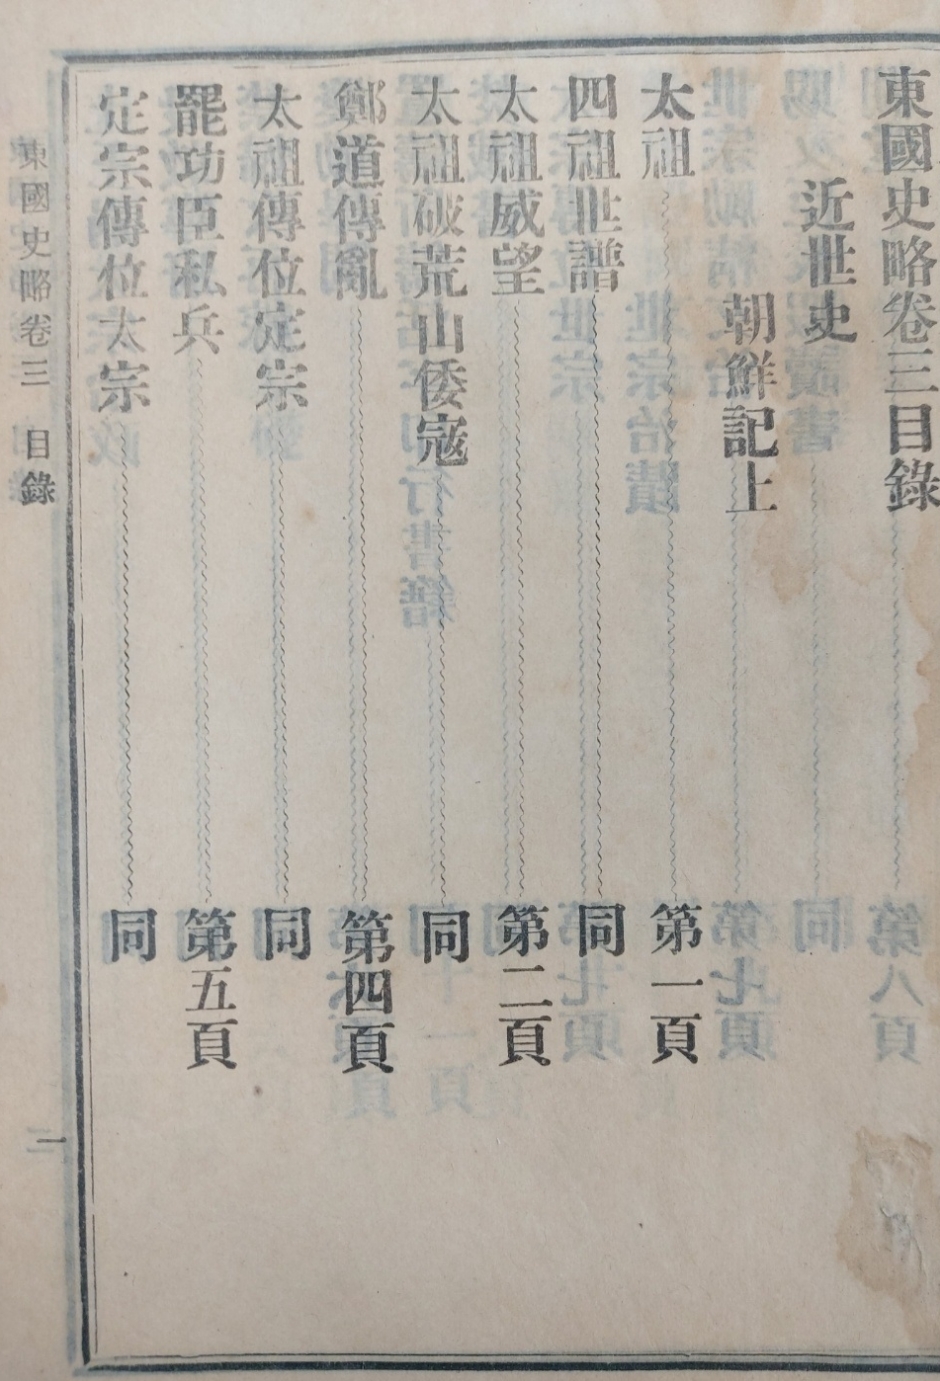 東國史略卷三目錄
近世史
朝鮮記上
太祖 第一頁
四祖世譜 同
太祖威望 第二頁
太祖破荒山倭寇 同
鄭道傳亂 第四頁
太祖傳位定宗 同
罷功臣私兵 第五頁
定宗傳位太宗 同
東國史略卷三 目錄 一